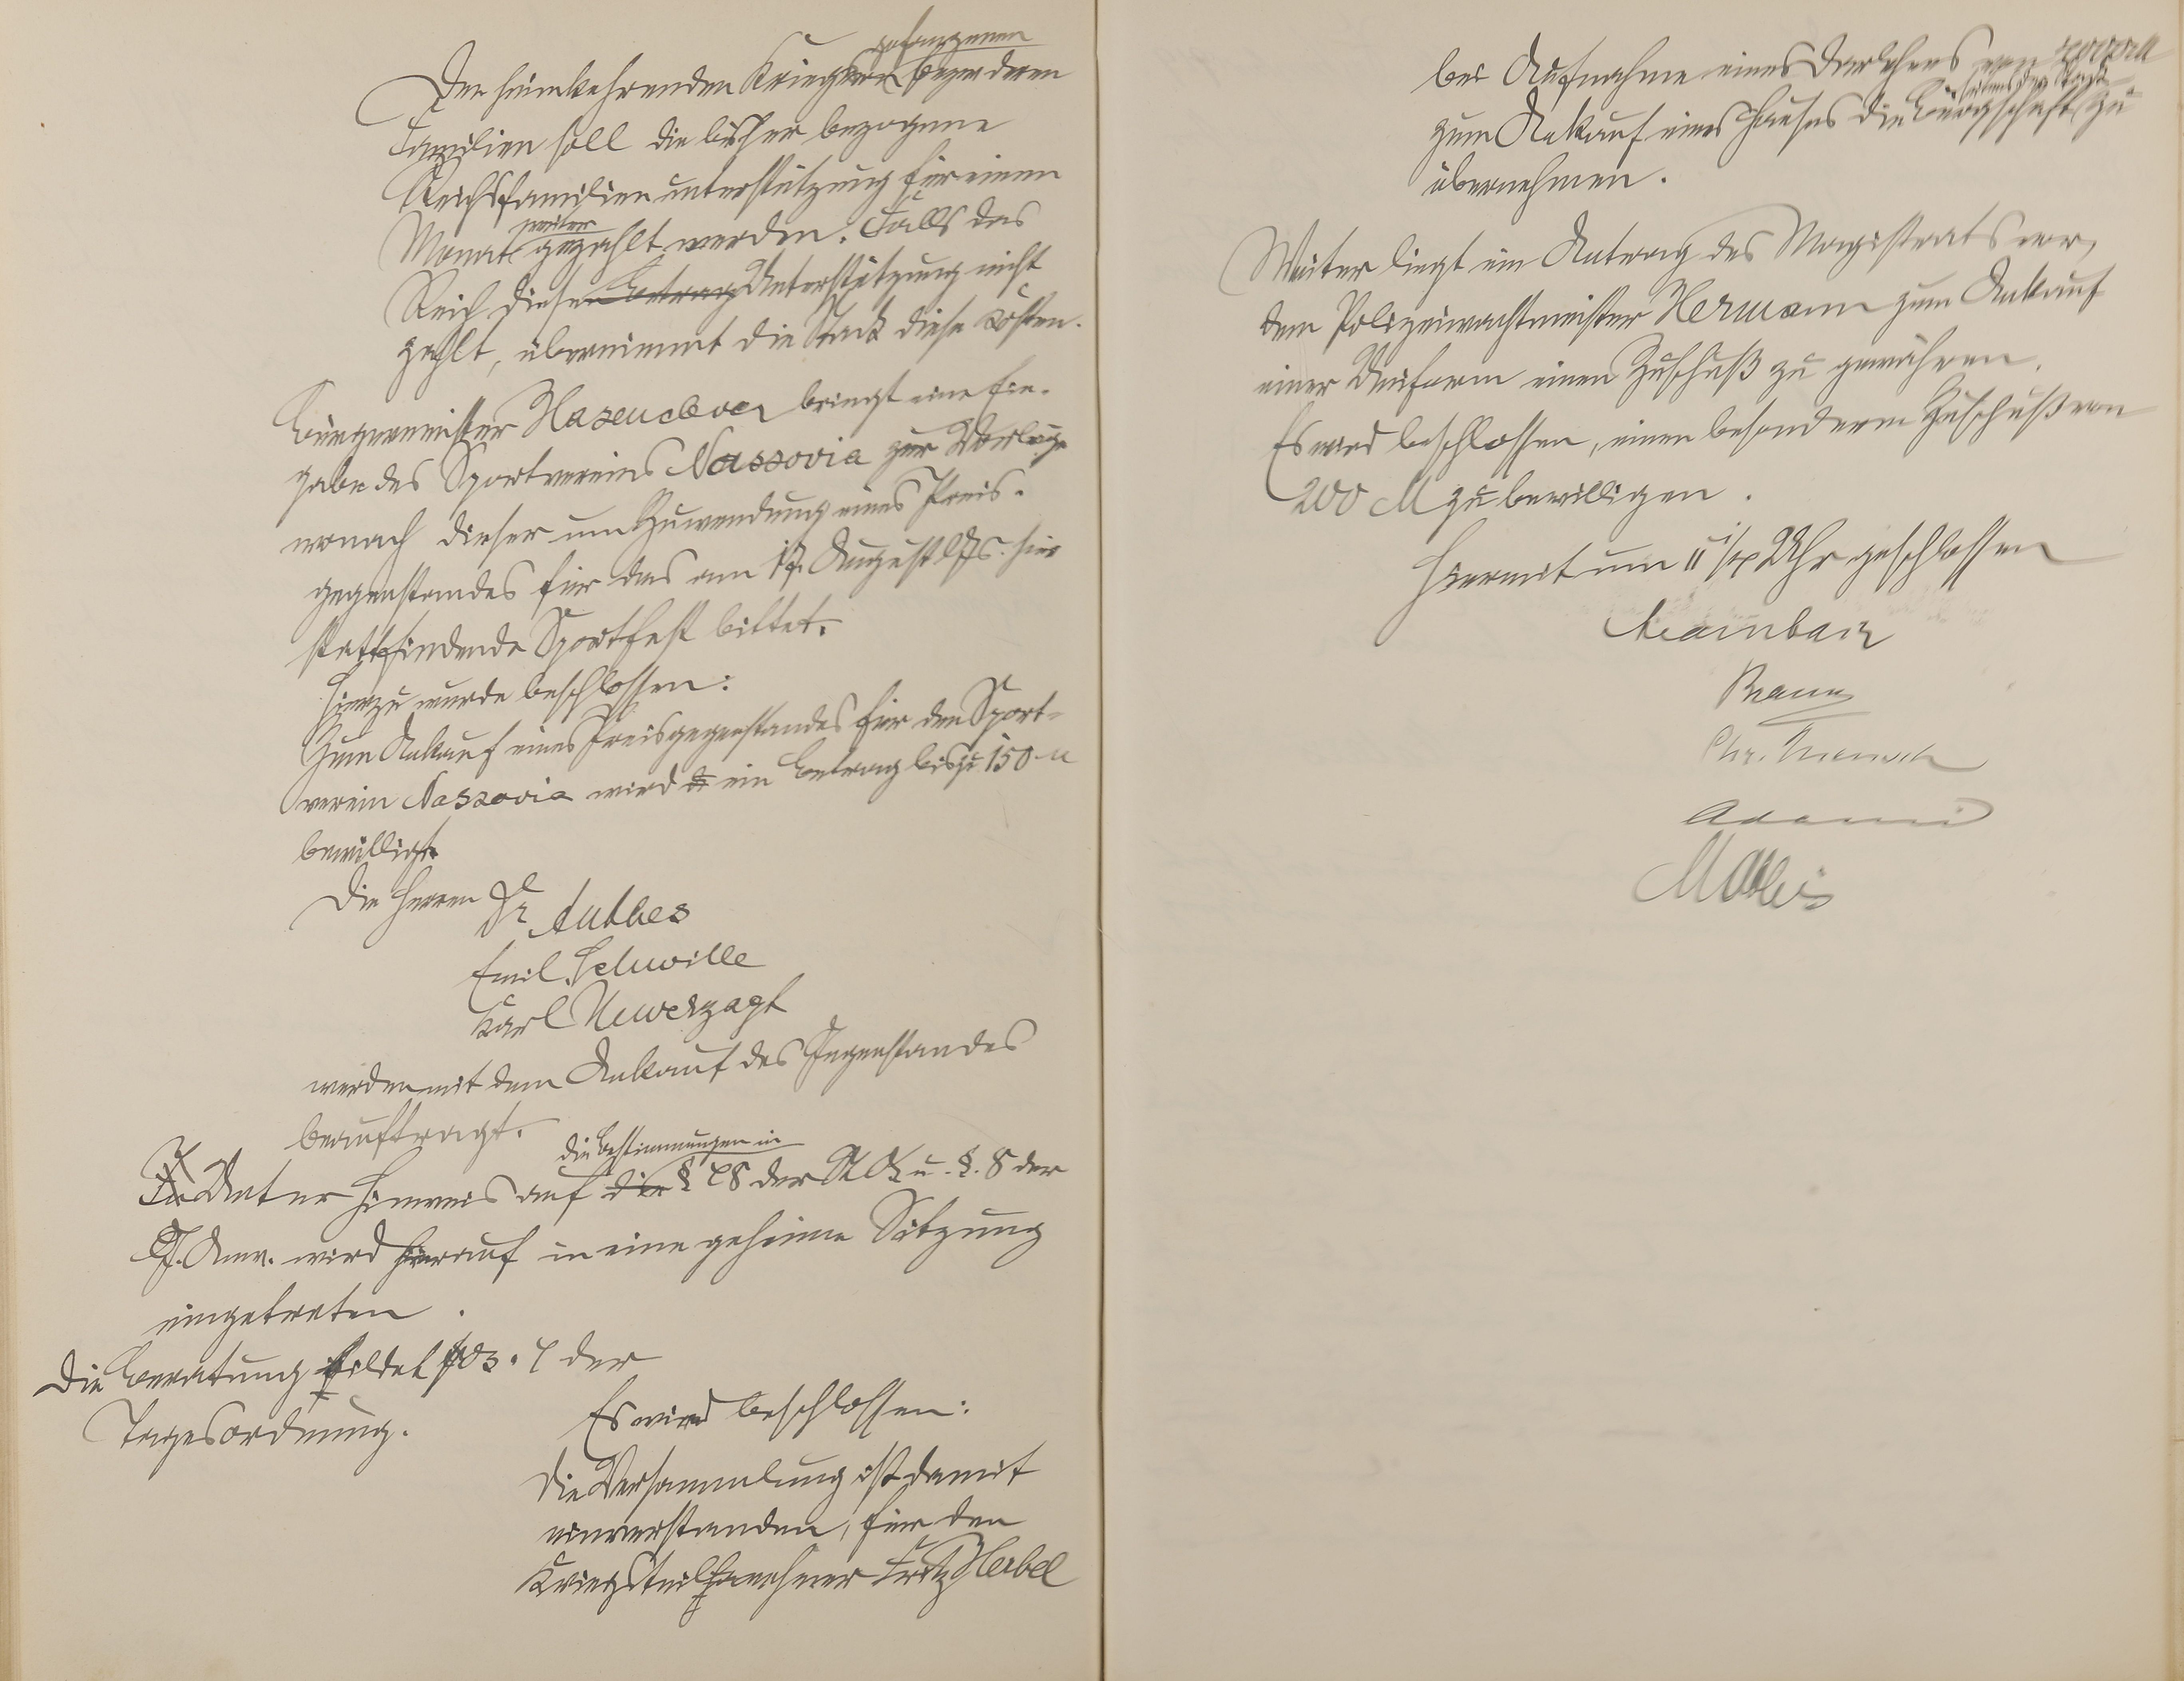 gefangenen
Den heimkehrenden Kriegs bezw deren
Familien soll die bisher bezogene
Reichsfamilienunterstützung für einen
weiter
Monat gezahlt werden. Falls das
Reich diese Betrag Unterstützung nicht
zahlt, übernimmt die Stadt diese Kosten.
Bürgermeister Hasenclever bringt eine Ein-
gabe des Sportvereins Nassovia zur Vorlage
wonach dieser um Zuwendung eines Preis-
gegenstandes für das am 17. August lfs. hier
stattfindende Sportfest bittet.
Hierzu wurde beschlossen:
Zum Ankauf eines Preisgegenstandes für den Sport-
verein Nassovia wird ein Betrag bis zu 150 M
bewilligt
Die Herren Dr Anthes
Emil
Karl Unverzagt
werden mit dem Ankauf des Gegenstandes
beauftragt.
die Bestimmungen in
Unter Hinweis auf die § 48 der StO u. §. 8 der
G. Anw. wird hierauf in eine geheime Sitzung
eingetreten.
Die Beratung bildet pos. 4 der
Tagesordnung.
Es wird beschlossen:
Die Versammlung ist damit
einverstanden, für den
Kriegsteilnehmer Fritz Herbel
bei Aufnahme eines Darlehens von
seitens der Stadt
zum Ankauf eines Hauses die Bürgschaft zu
übernehmen.
Weiter liegt ein Antrag des Magistrats vor,
dem Polizeiwachtmeister Hermann zum Ankauf
einer Uniform einen Zuschuß zu gewähren.
Es wird beschlossen, einen besonderen Zuschuß von
200 M zu bewilligen.
Hiermit um 11 1/4 Uhr geschlossen
Braun
Chr.
Adami